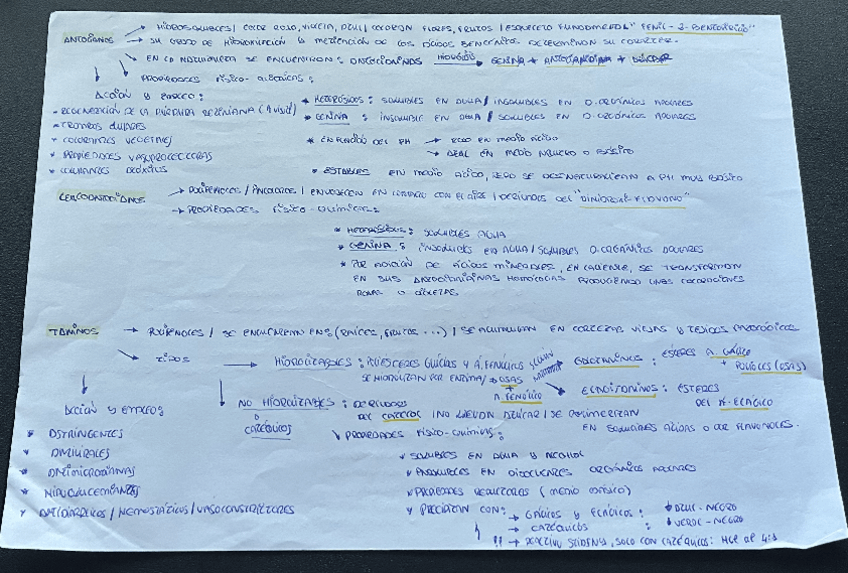 ANTOCIANOS → HIDROSOLUBLES / COLOR ROJO, VIOLETA, AZUL / COLOREAN FLORES, FRUTOS / ESQUELETO FUNDAMENTAL "FENIL-2-BENZOPIRILIO"
→ SU GRADO DE HIDROXILACIÓN Y METILACIÓN DE LOS ÁCIDOS DETERMINAN SU COLOR.
→ EN LA NATURALEZA SE ENCUENTRAN: ANTOCIANINAS HIDRÓLISIS GENINA + ANTOCIANIDINA + AZÚCAR
PROPIEDADES FÍSICO-QUÍMICAS:
ACCIÓN Y EMPLEO:
* HETERÓSIDOS: SOLUBLES EN AGUA / INSOLUBLES EN D. ORGÁNICOS APOLARES
- REGENERACIÓN DE LA PÚRPURA RETINIANA (A. visual)
* GENINA: INSOLUBLE EN AGUA / SOLUBLES EN D. ORGÁNICOS APOLARES
- COLORANTES VEGETALES
* EN FUNCIÓN DEL PH → ROJO EN MEDIO ÁCIDO
- PROPIEDADES VASOPROTECTORAS
→ AZUL EN MEDIO NEUTRO O BÁSICO
* ESTABLES EN MEDIO ÁCIDO, PERO SE DESNATURALIZAN A PH MUY BÁSICO
LEUCOANTOCIANOS → POLIFENOLES / INCOLOROS / EN CONTACTO CON EL AIRE / DERIVADOS DEL
→ PROPIEDADES FÍSICO-QUÍMICAS:
* HETERÓSIDOS: SOLUBLES AGUA
* GENINA: INSOLUBLES EN AGUA / SOLUBLES D. ORGÁNICOS APOLARES
* POR ADICIÓN DE ÁCIDOS MINERALES, EN CALIENTE, SE TRANSFORMAN
EN SUS ANTOCIANINAS HOMÓLOGAS PRODUCIENDO UNAS COLORACIONES
ROJAS O VIOLETAS
TANINOS → POLIFENOLES / SE ENCUENTRAN EN: (RAÍCES, FRUTOS ...) / SE ACUMULAN EN CORTEZAS VIEJAS Y TEJIDOS PATOLÓGICOS
TIPOS → HIDROLIZABLES: POLIÉSTERES GLÚCIDOS Y Á. FENÓLICOS SEGÚN → GALOTANINOS: ÉSTERES A. GÁLICO
SE HIDROLIZAN POR ENZIMA / → OSAS + POLIOLES (OSAS)
+ A. FENÓLICO → ELAGITANINOS: ÉSTERES
DEL A. ELÁGICO
ACCIÓN Y EMPLEO:
NO HIDROLIZABLES: DERIVADOS
O DEL CATECOL / NO LLEVAN AZÚCAR / SE POLIMERIZAN EN SOLUCIONES ÁCIDAS O DAR FLAVONOLES.
CATÉQUICOS
* ASTRINGENTES
PROPIEDADES FÍSICO-QUÍMICAS:
* SOLUBLES EN AGUA Y ALCOHOL
* ANTIMICROBIANAS
* INSOLUBLES EN DISOLVENTES ORGÁNICOS APOLARES
* HIPOGLUCEMIANTES
* PROPIEDADES REDUCTORAS (MEDIO BÁSICO)
* ANTIDIARREICOS / HEMOSTÁTICOS / VASOCONSTRICTORES
* PRECIPITAN CON: → GÁLICOS Y ELÁGICOS: ↓ AZUL-NEGRO
→ CATÉQUICOS: ↓ VERDE-NEGRO
!! → REACTIVO STIASNY, SOLO CON CATÉQUICOS: